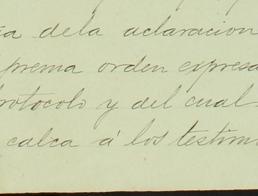 ia dela aclaracion
prema orden expresa
rotocolo y del cual
calca á los testim